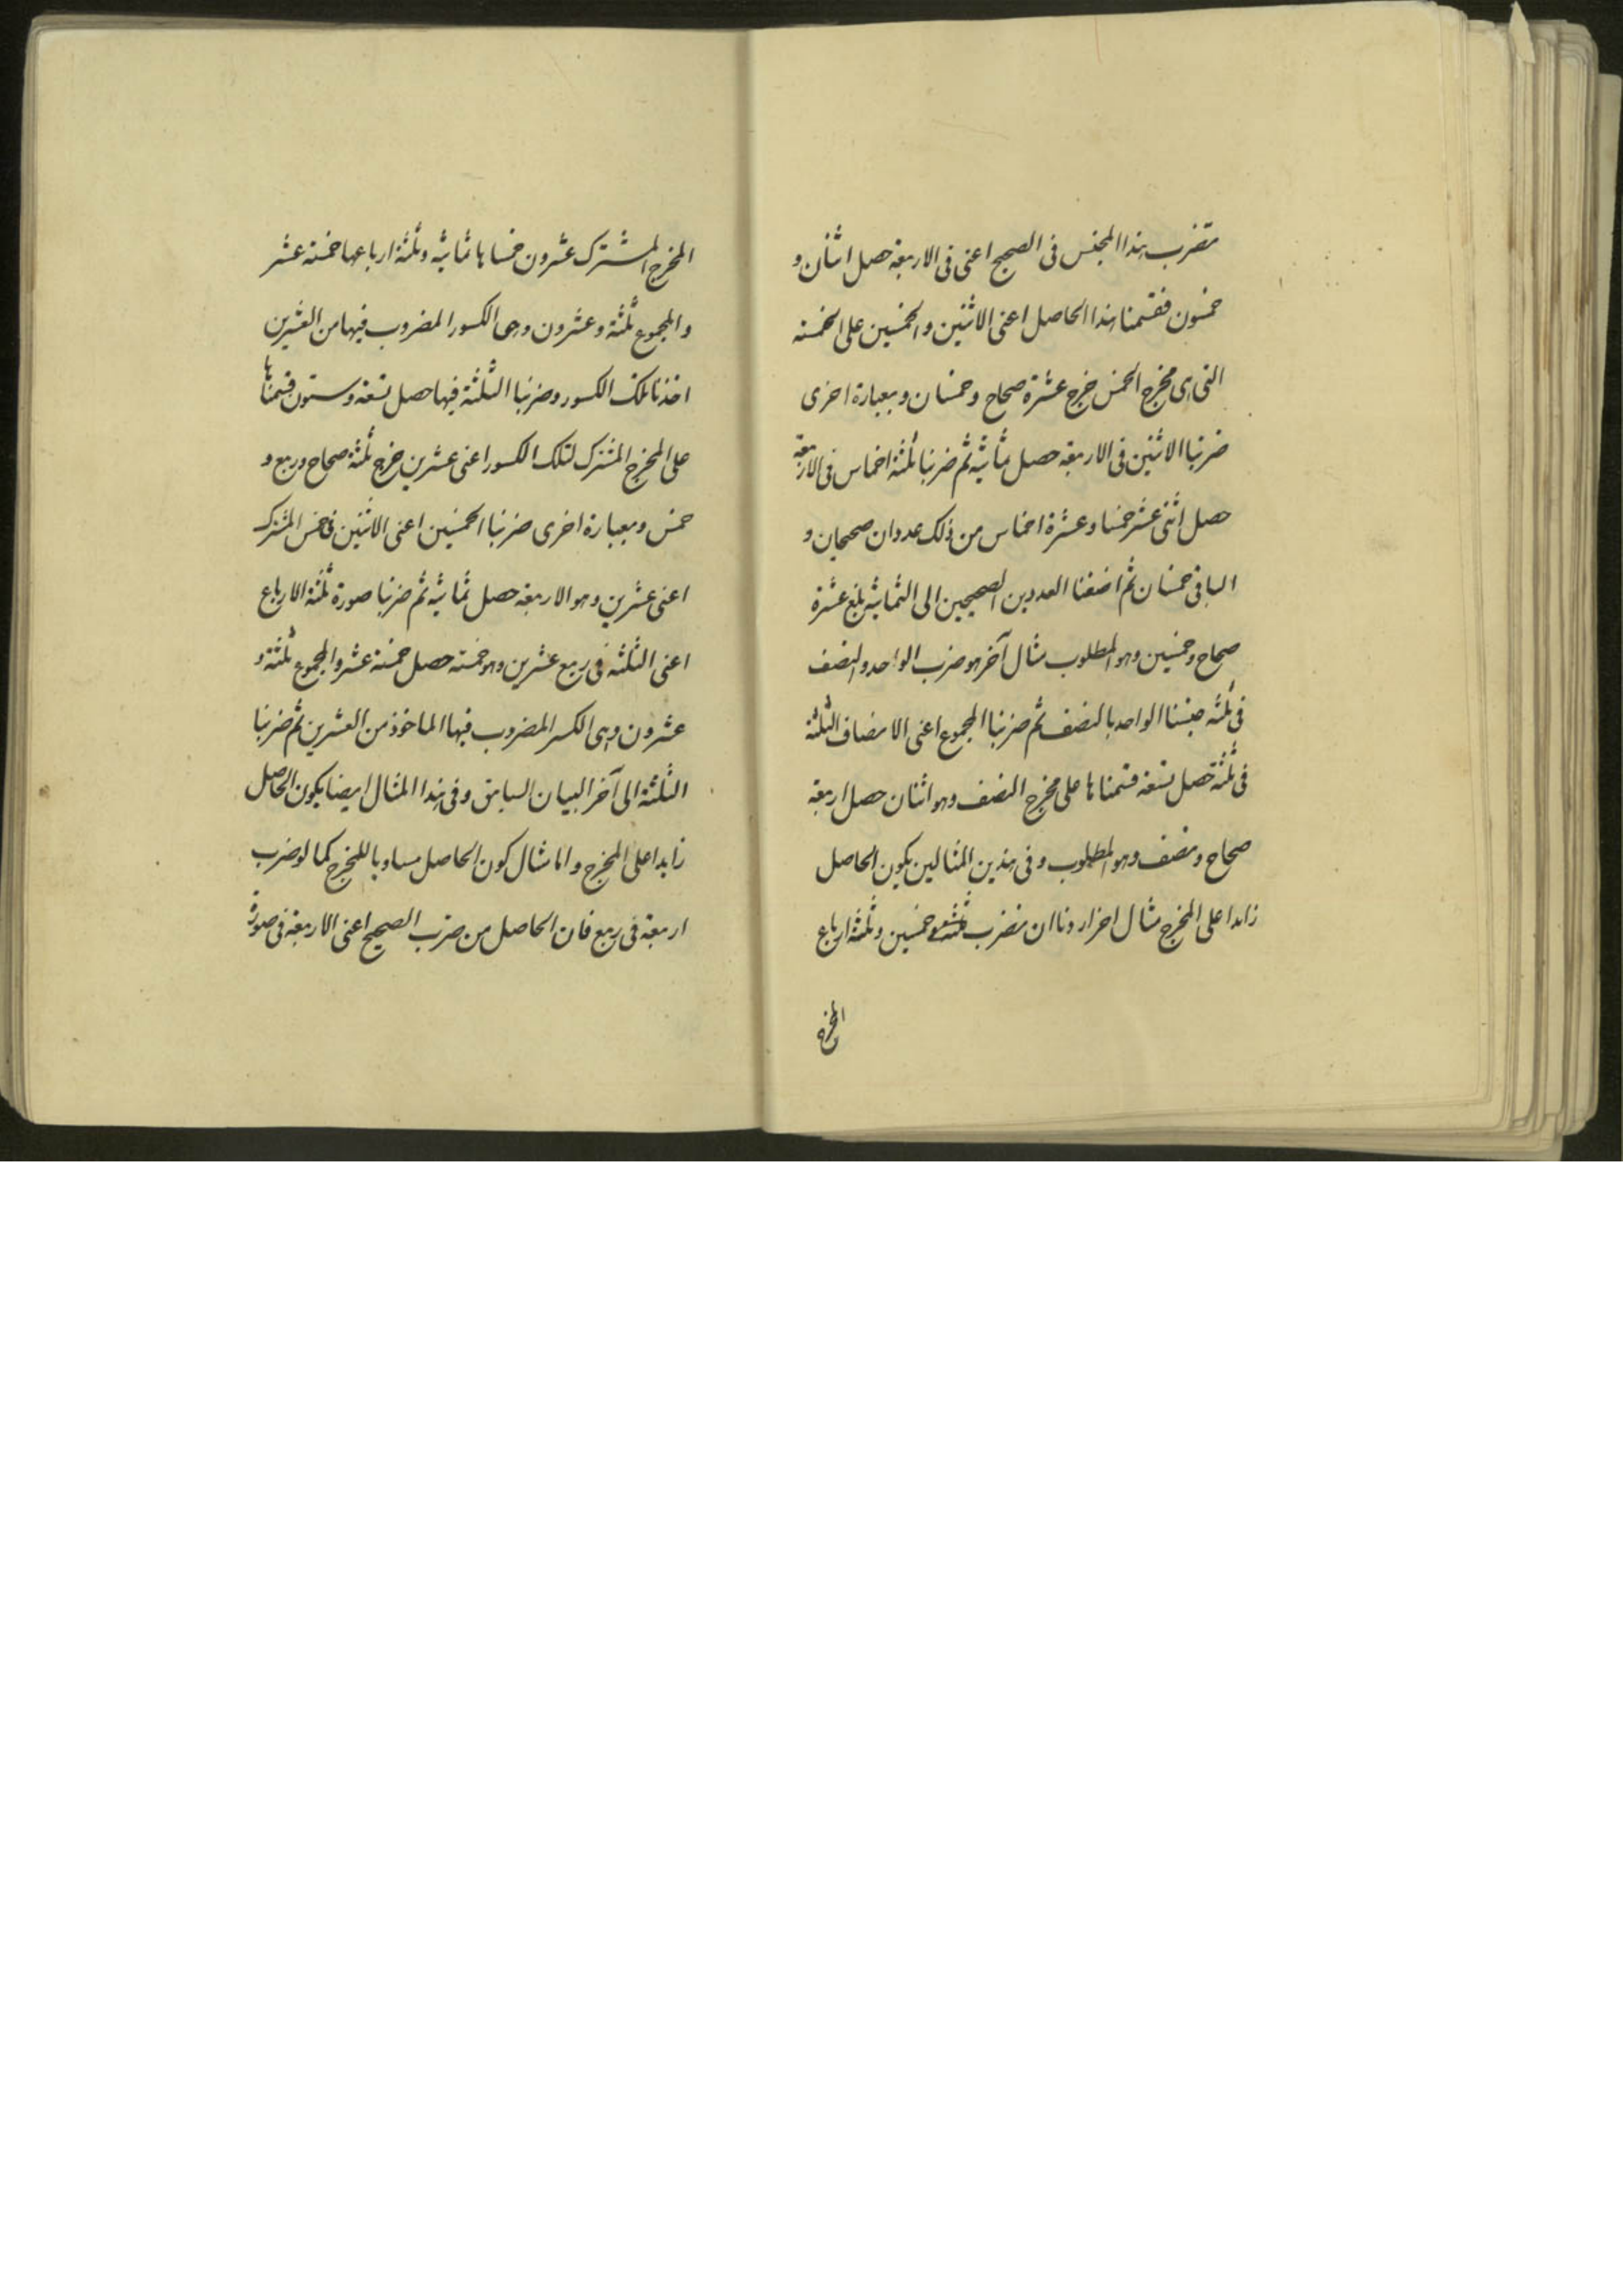 متضرب هذا المجنس فى الصحيح اعنى فى الاربعة حصل اثنان و
خمسون فقسمنا هذا الحاصل اعنى الاثنين والخمسين على الخمسة
التى هى مخرج الخمس خرج عشرة صحاح وخمسان وبعبارة اخرى
ضربنا الاثنين فى الاربعة حصل ثمانية ثم ضربنا ثلثة اخماس فى الاربعة
حصل اثنى عشر خمسا وعشرة اخماس من ذلك عددان صحيحان و
الباقى خمسان ثم اضفنا العددين الصحيحين الى الثمانية بلغ عشرة
صحاح وخمسين وهو المطلوب مثال آخر هو ضرب الواحد والنصف
فى ثلثة جنسنا الواحد بالنصف ثم ضربنا المجموع اعنى الانصاف الثلثة
فى ثلثة حصل تسعة قسمناها على مخرج النصف وهو اثنان حصل اربعة
صحاح ونصف وهو المطلوب وفى هذين المثالين يكون الحاصل
زايدا على المخرج مثال اخر اردنا ان نضرب ثلثة فى خمسين وثلثة ارباع
المخرج
المخرج المشترك عشرون خمساها ثمانية وثلثة ارباعها خمسة عشر
والمجموع ثلثة وعشرون وهى الكسور المضروب فيها من العشرين
اخذنا تلك الكسور وضربنا الثلثة فيها حصل تسعة وستون قسمناها
على المخرج المشترك لتلك الكسور اعنى عشرين خرج ثلثة صحاح وربع و
خمس وبعبارة اخرى ضربنا الخمسين اعنى الاثنين فى خمس المشترك
اعنى عشرين وهو الاربعة حصل ثمانية ثم ضربنا صورة ثلثة الارباع
اعنى الثلثة فى ربع عشرين وهو خمسة حصل خمسة عشر والمجموع ثلثة و
عشرون وهى الكسر المضروب فيها الماخوذ من العشرين ثم ضربنا
الثلثة الى آخر البيان السابق وفى هذا المثال ايضا يكون الحاصل
زايدا على المخرج واما مثال كون الحاصل مساويا للمخرج كما لو ضرب
اربعة فى ربع فان الحاصل من ضرب الصحيح اعنى الاربعة فى صورة